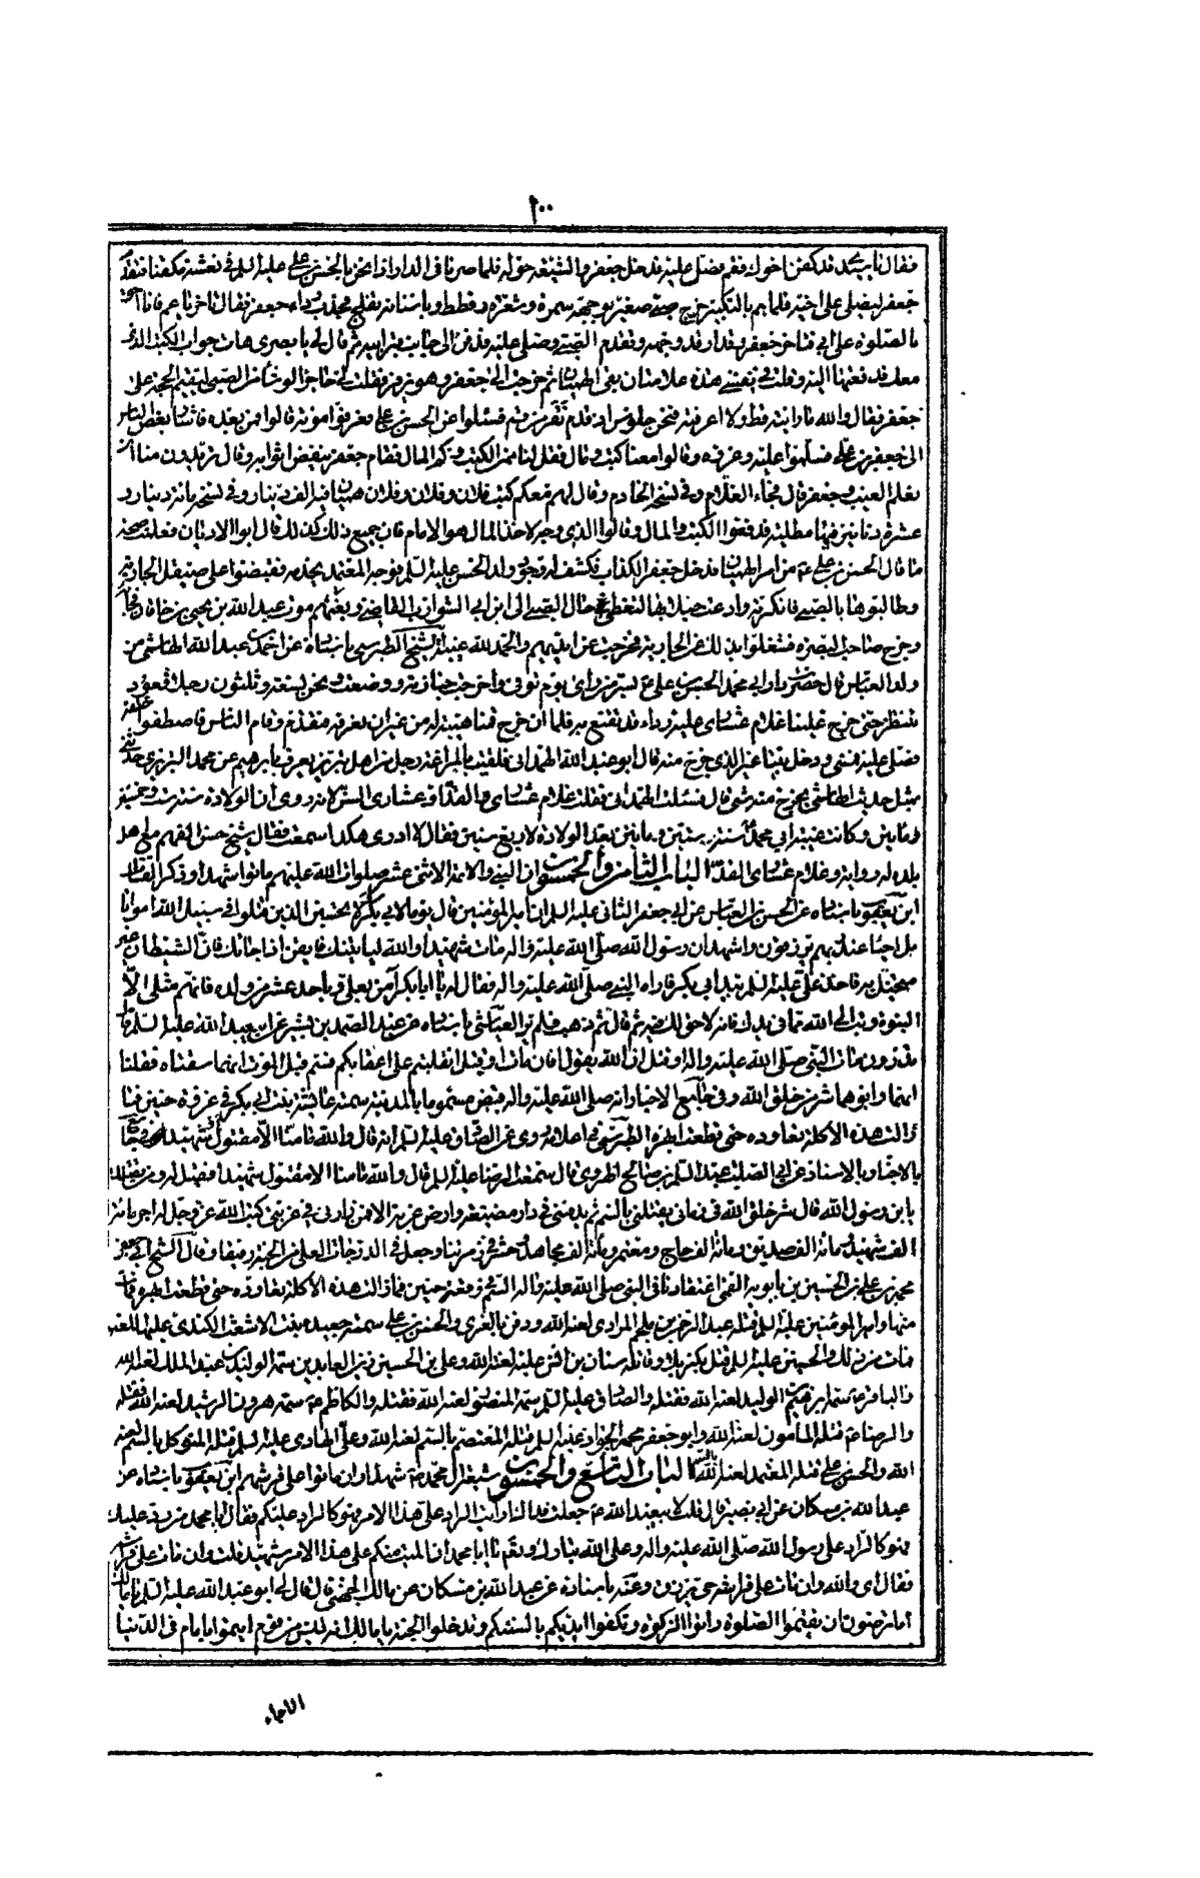 ٢٠٠
فقال يا سيدي قد كفن اخوك فقم فصل عليه فدخل جعفر والشيعة حوله فلما صرنا في الدار اذا نحن بالحسن بن علي عليه السلم في نعشه مكفنا فتقدم
جعفر ليصلي على اخيه فلما هم بالتكبير خرج صبي صغير بوجهه سمرة وشعره قطط وباسنانه تفلج فجذب رداء جعفر فقال تاخر يا عم فانا احق
بالصلوة على ابي فتاخر جعفر وقد اربد وجهه وتقدم الصبي وصلى عليه ودفن الى جانب قبر ابيه ثم قال لي يا بصري هات جواب الكتب الذي
معك فدفعتها اليه وقلت في نفسي هذه علامتان بقي الهميان ثم خرجت الى جعفر وهو يزفر فقلت له حاجز الوشا من الصبي ليقيم الحجة على
جعفر فقال والله ما رايته قط ولا اعرفه فنحن جلوس اذ قدم نفر من قم فسئلوا عن الحسن بن علي فعرفوا موته قالوا فمن بعده فاشار بعض الناس
الى جعفر بن علي فسلموا عليه وعزوه وقالوا معنا كتب ومال فقل لنا ممن الكتب وكم المال فقام جعفر ينفض اثوابه وقال تريدون منا ان
نعلم الغيب جعفر قال فجاء الغلام وفي نسخة الخادم وقال لهم معكم كتب فلان وفلان وفلان هميان فيه الف دينار وفي نسخة مائة دينار و
عشرة دنانير فيها مطلية فدفعوا الكتب والمال وقالوا الذي وجه لاخذ المال هو الامام فان جميع ذلك كذلك قال ابو الاديان فعلمت صحة
ما قال الحسن بن علي ع من امر الهميان فدخل جعفر الكذاب فكشف له وجود ولد الحسن عليه السلم فوجه المعتمد بخدمه فقبضوا على صقيل الجارية
وطالبوها بالصبي فانكرته وادعت حبلا بها لتغطي حال الصبي الى ابن ابي الشوارب القاضي وبغتهم موت عبيد الله بن يحيى بن خاقان فجأة
وخرج صاحب البصرة فشغلوا بذلك عن الجارية فخرجت عن ايديهم والحمد لله الشيخ الطبرسي باسناده عن احمد بن عبد الله الهاشمي من
ولد العباس قال حضرت دار ابي محمد الحسن بن علي ع بسر من راى يوم توفي واخرجت جنازته ووضعت ونحن تسعة وثلثون رجلا قعود
ننتظر حتى خرج علينا غلام عشاري عليه رداء قد تقنع به فلما ان خرج قمنا هيبة له من غير ان نعرفه فتقدم وقام الناس فاصطفوا خلفه
فصلى عليه ومشى ودخل بيتا غير الذي خرج منه قال ابو عبد الله الهمداني فلقيت بالمراغة رجلا من اهل تبريز يعرف بابرهيم بن محمد التبريزي حدثني
بمثل حديث الهاشمي لم يخرم منه شي قال فسئلت الهمداني فقلت غلام عشاري القد او عشاري السن لانه روى ان الولادة سنة ست وخمسين
ومائتين وكانت غيبة ابي محمد سنة ستين ومائتين بعد الولادة لاربع سنين فقال لا ادري هكذا سمعت فقال شيخ حسن الفهم من اهل
بلده له رواية وغلام عشاري القد الباب الثامن والخمسون ان النبي والائمة الاثني عشر صلوات الله عليهم ماتوا شهداء وذكر القتلة
ابن يعقوب باسناده عن الحسن بن العباس عن ابي جعفر الثاني عليه السلم ان امير المؤمنين قال يوما لابي بكر لا تحسبن الذين قتلوا في سبيل الله امواتا
بل احيا عند ربهم يرزقون واشهد ان رسول الله صلى الله عليه واله مات شهيدا والله لياتينك فايقن اذا جائك فان الشيطان غير
متخيل به فاخذ علي عليه السلم بيد ابي بكر فاراه النبي صلى الله عليه واله فقال له يا ابا بكر آمن بعلي وباحد عشر من ولده فانهم مثلي الا
النبوة وتب الى الله مما في يدك فانه لا حق لك فيه ثم قال ثم ذهب فلم ير العياشي باسناده عن عبد الصمد بن بشير عن ابي عبد الله عليه السلم قال
تدرون مات النبي صلى الله عليه واله او قتل ان الله يقول افان مات او قتل انقلبتم على اعقابكم فسم قبل الموت انهما سقتاه فقلنا
انهما وابوهما شر من خلق الله وفي جامع الاخبار انه صلى الله عليه واله قبض مسموما بالمدينة سمته عايشة بنت ابي بكر في غزوة حنين فما
زالت هذه الاكلة تعاوده حتى قطعت ابهره الطبرسي في اعلامه روى عن الصادق عليه السلم انه قال والله ما منا الا مقتول شهيد
بالاسناد عن ابي الصلت عبد السلم بن صالح الهروي قال سمعت الرضا عليه السلم قال والله ما منا الا مقتول شهيد فقيل له ومن يقتلك
يا بن رسول الله قال شر خلق الله في زماني يقتلني بالسم ثم يدفنني في دار مضيعة وارض غربة الا فمن زارني في غربتي كتب الله عز وجل له اجر مائة
الف شهيد ومائة الف صديق ومائة الف حاج ومعتمر ومائة الف مجاهد وحشر في زمرتنا وجعل في الدرجات العلى من الجنة رفيقنا وقال الشيخ ابو جعفر
محمد بن علي بن الحسين بن بابويه القمي اعتقادنا في النبي صلى الله عليه واله انه سم في غزوة حنين فما زالت هذه الاكلة تعاوده حتى قطعت ابهره فمات
منها وامير المؤمنين عليه السلم قتله عبد الرحمن بن ملجم المرادي لعنه الله ودفن بالغري والحسن بن علي سمته جعيدة بنت الاشعث الكندي عليها اللعنة
فمات من ذلك والحسين عليه السلم قتل بكربلا وقاتله سنان بن انس عليه لعنة الله وعلي بن الحسين زين العابدين سمه الوليد بن عبد الملك لعنه الله
والباقر ع سمه ابرهيم بن الوليد لعنه الله فقتله والصادق عليه السلم سمه المنصور لعنه الله فقتله والكاظم ع سمه هرون الرشيد لعنه الله فقتله
والرضا ع قتله المامون لعنه الله وابو جعفر محمد الجواد عليه السلم قتله المعتصم بالسم لعنه الله وعلي الهادي عليه السلم قتله المتوكل بالسم لعنه
الله والحسن بن علي قتله المعتمد لعنه الله الباب التاسع والخمسون شيعة ال محمد ع شهداء وان ماتوا على فرشهم ابن يعقوب باسناده عن
عبد الله بن مسكان عن ابي بصير قال قلت لابي عبد الله ع جعلت فداك ارايت الراد على هذا الامر فهو كالراد عليكم فقال يا ابا محمد من رد عليك
فهو كالراد على رسول الله صلى الله عليه واله وعلى الله تبارك وتعالى يا ابا محمد ان الميت منكم على هذا الامر شهيد قلت وان مات على فراشه
فقال اي والله وان مات على فراشه حي يرزق وعنه باسناده عن عبد الله بن مسكان عن مالك الجهني قال قال لي ابو عبد الله عليه السلم يا مالك
اما ترضون ان تقيموا الصلوة واتوا الزكوة وتكفوا ايديكم بالسنتكم وتدخلوا الجنة يا مالك انه ليس من قوم ايتموا بامام في الدنيا
الا جاء